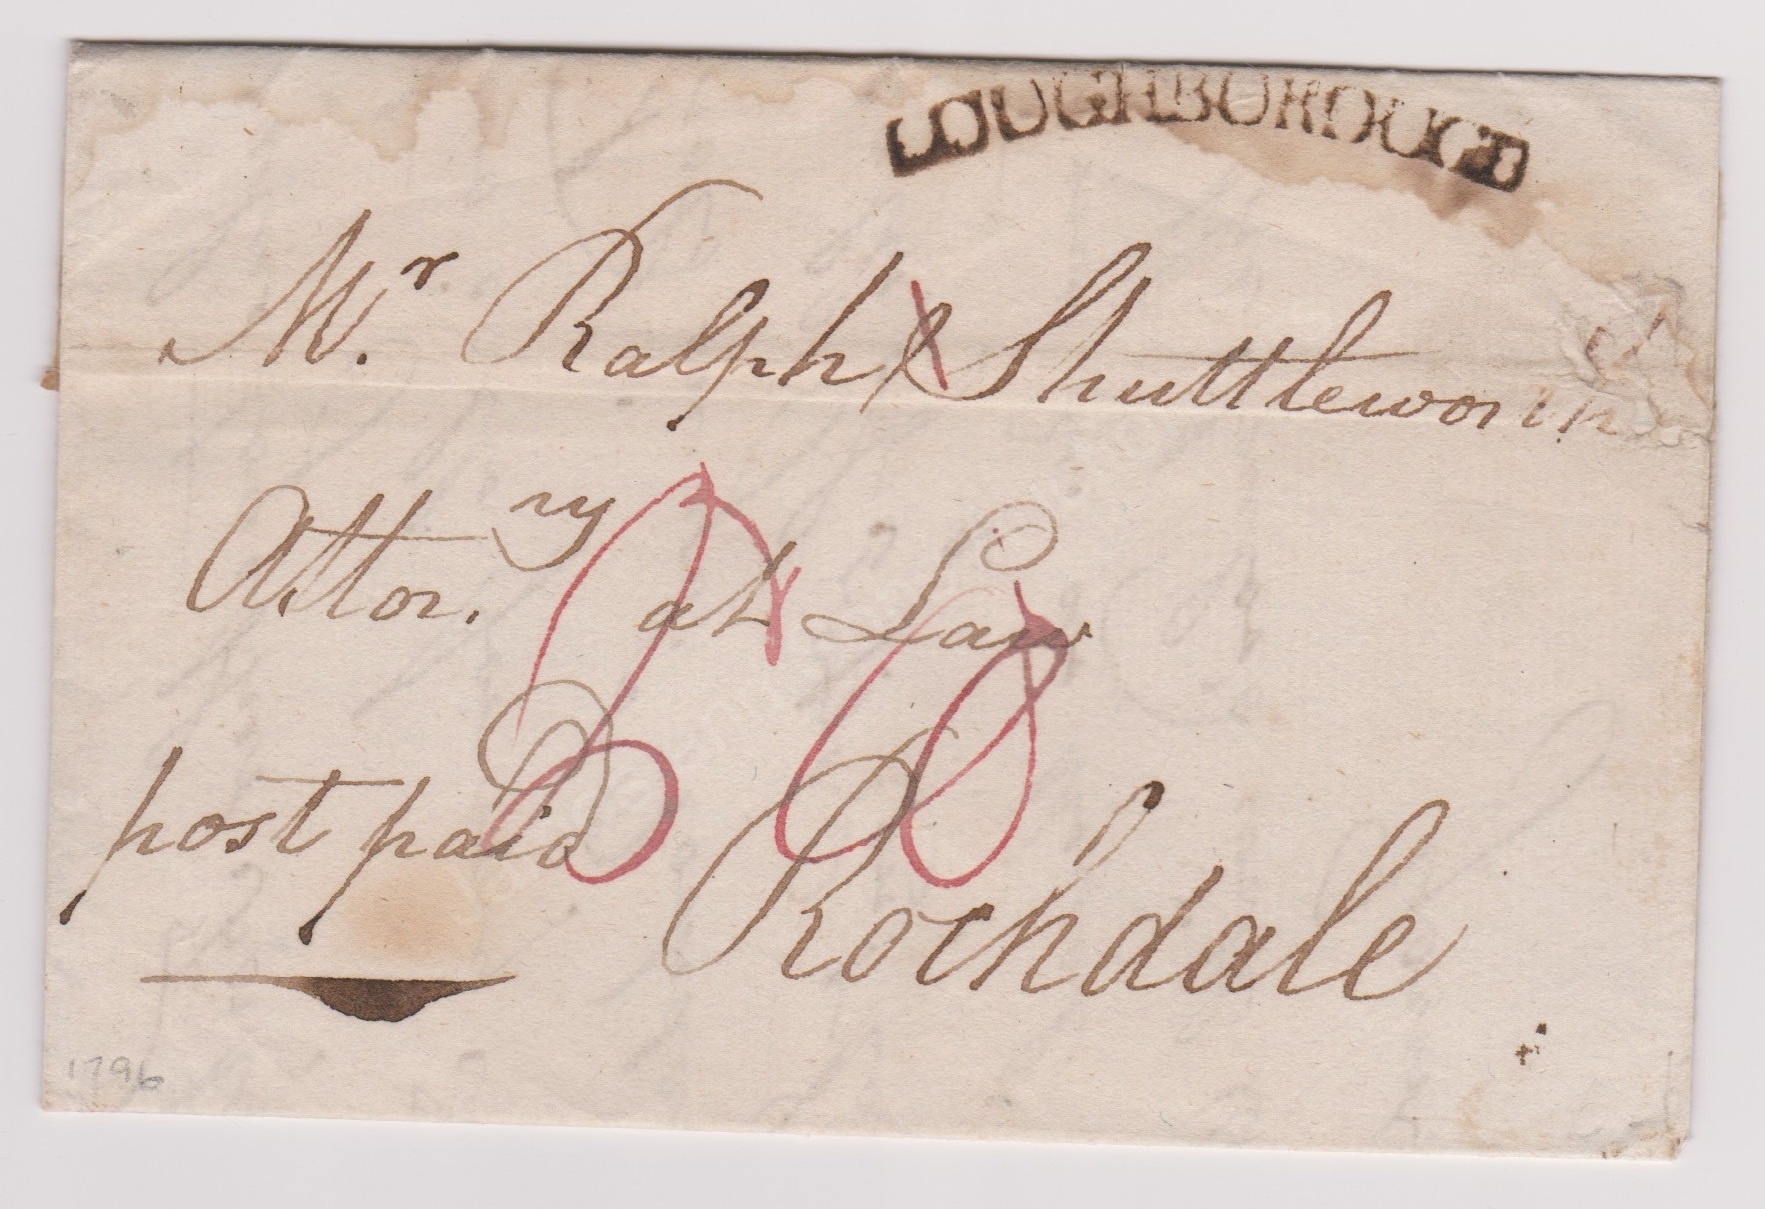 LOUGHBOROUGH
Mr. Ralph Shuttleworth
Attorny. at Law
post paid Rochdale
1796